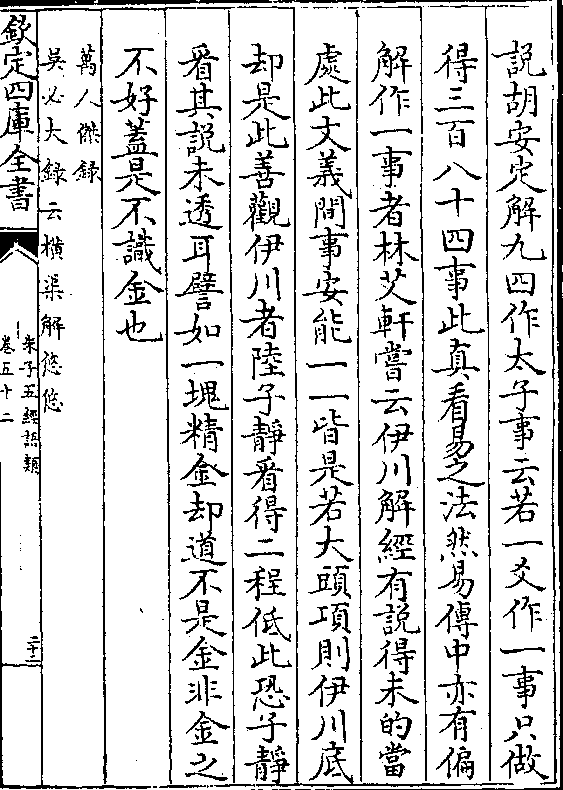 說胡安定解九四作太子事云若一爻作一事只做
得三百八十四事此真看易之法然易傳中亦有偏
解作一事者林艾軒嘗云伊川解經有說得未的當
處此文義間事安能一一皆是若大頭項則伊川底
却是此善觀伊川者陸子靜看得二程低此恐子靜
看其說未透耳譬如一塊精金却道不是金非金之
不好蓋是不識金也
萬人傑録
吳必大録云橫渠解悠悠
欽定四庫全書
朱子五經語類
卷五十二
二十二